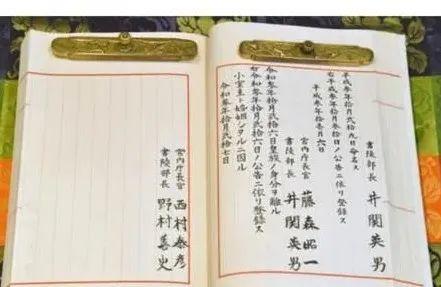 平成参年拾月弐拾九日命名ス
書陵部長 井関英男
右平成参年拾月参拾日ノ公告ニ依リ登録ス
平成参年拾壱月六日
宮内庁長官 藤森昭一
書陵部長 井関英男
令和参年拾月弐拾六日皇族ノ身分ヲ離ル
右令和参年拾月弐拾六日ノ公告ニ依リ登録ス
小室圭ト婚姻シタルニ因ル
令和参年拾月弐拾七日
宮内庁長官 西村泰彦
書陵部長 野村善史